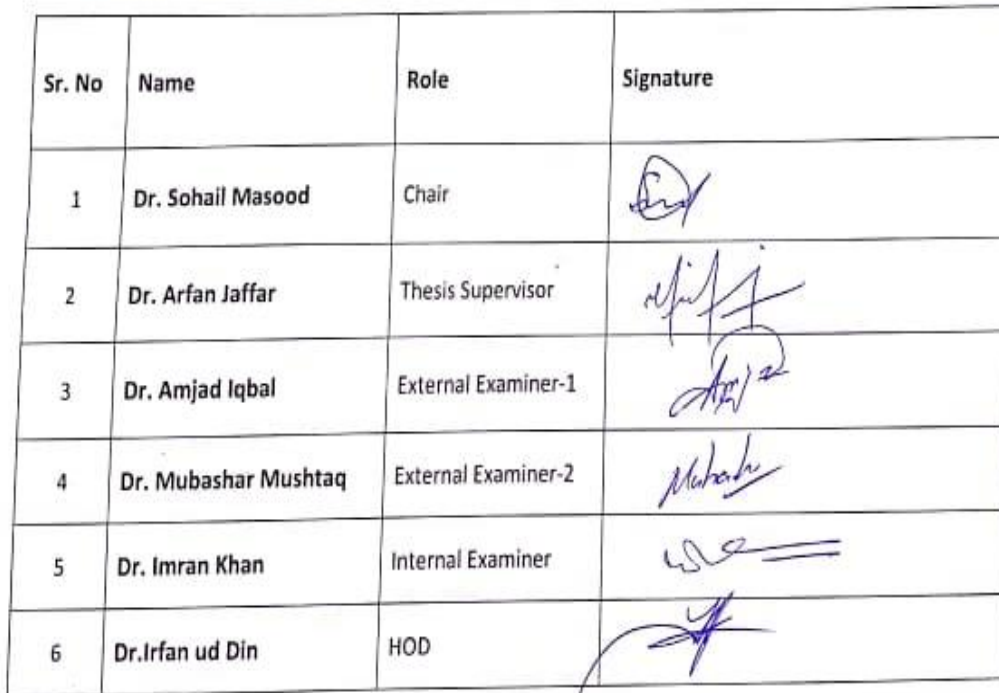 Sr. No Name Role Signature
1 Dr. Sohail Masood Chair
2 Dr. Arfan Jaffar Thesis Supervisor
3 Dr. Amjad Iqbal External Examiner-1
4 Dr. Mubashar Mushtaq External Examiner-2
5 Dr. Imran Khan Internal Examiner
6 Dr.Irfan ud Din HOD